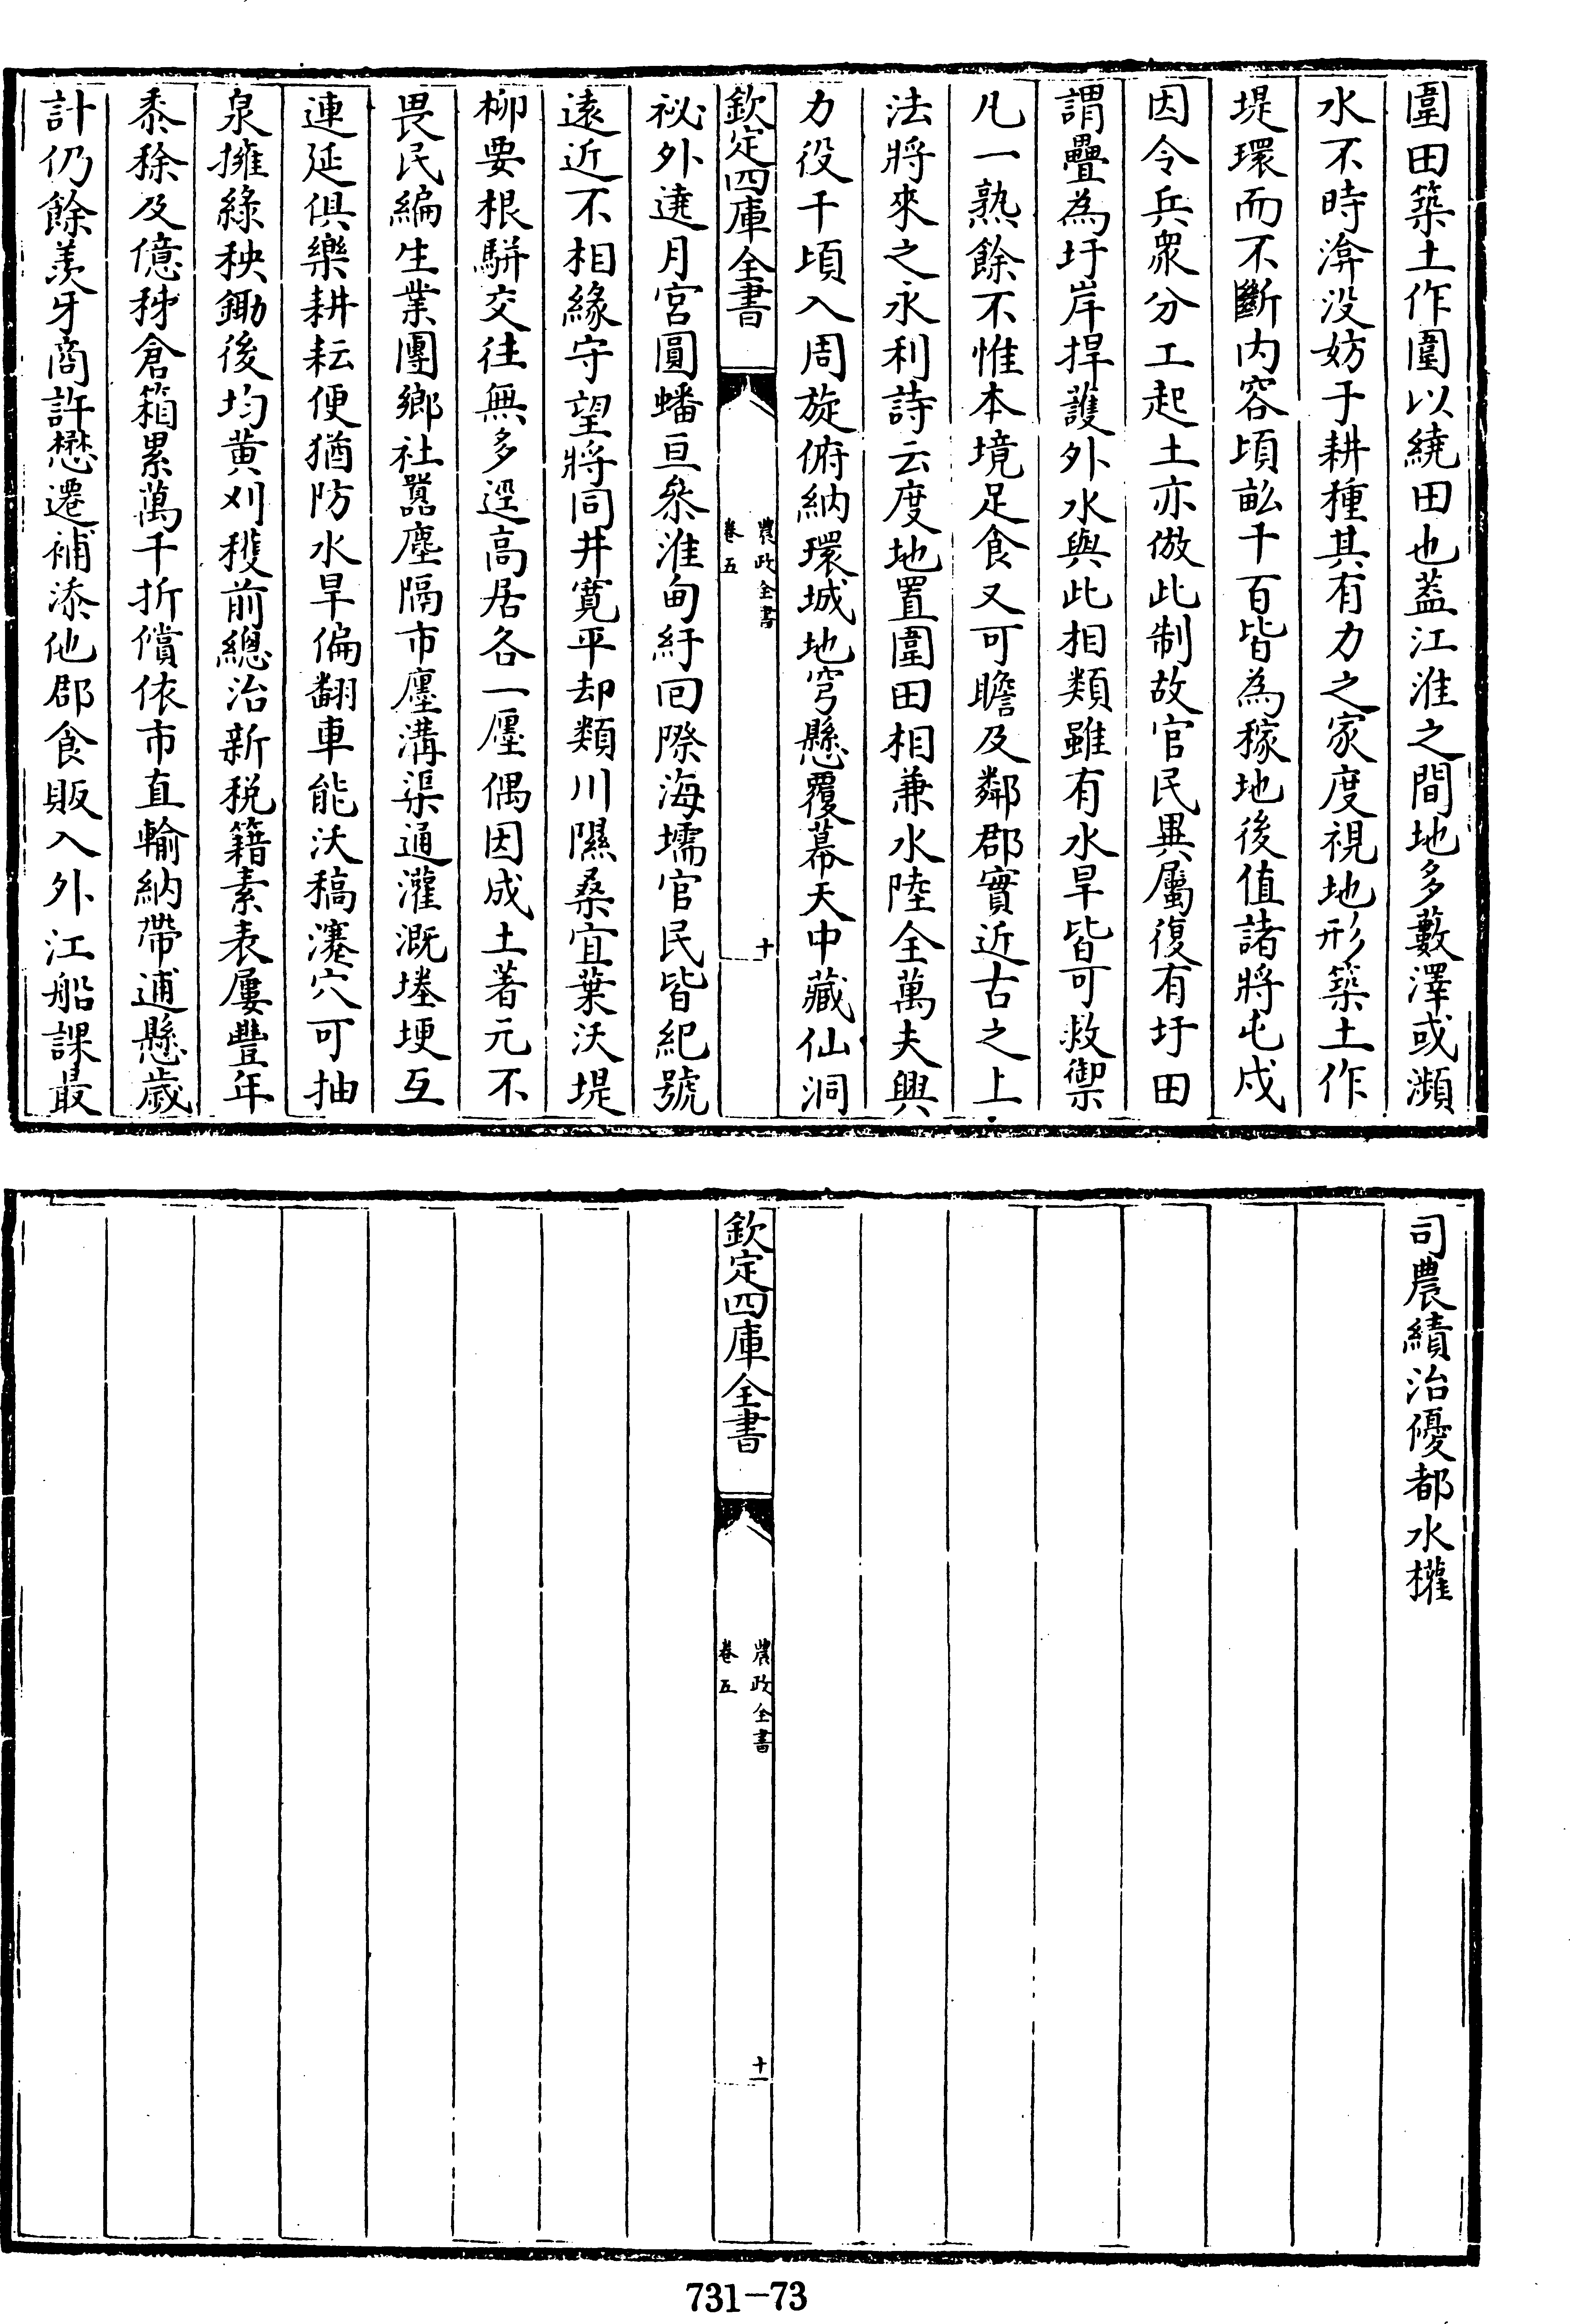 圍田築土作圍以繞田也葢江淮之間地多藪澤或瀕
水不時渰没妨于耕種其有力之家度視地形築土作
堤環而不斷内容頃畝千百皆為稼地後值諸將屯戍
因令兵衆分工起土亦倣此制故官民異屬復有圩田
謂疊為圩岸捍護外水與此相類雖有水旱皆可救禦
凡一熟餘不惟本境足食又可贍及鄰郡實近古之上
法將來之永利詩云度地置圍田相兼水陸全萬夫興
力役千頃入周旋俯納環城地穹懸覆幕天中藏仙洞
欽定四庫全書
農政全書
卷五
十
祕外遶月宮圓蟠亘叅淮甸紆回際海壖官民皆紀號
遠近不相緣守望將同井寛平却類川隰桑宜葉沃堤
柳要根駢交往無多逕高居各一廛偶因成土著元不
畏民編生業團鄉社嚚塵隔市廛溝渠通灌溉塍埂互
連延俱樂耕耘便猶防水旱偏翻車能沃稿瀽穴可抽
泉擁緑秧鋤後均黄刈穫前總治新税籍素表屢豐年
黍稌及億秭倉箱累萬千折償依市直輸納帶逋懸歲
計仍餘羨牙商許懋遷補添他郡食販入外江船課最
司農績治優都水權
欽定四庫全書
農政全書
卷五
十一
731-73